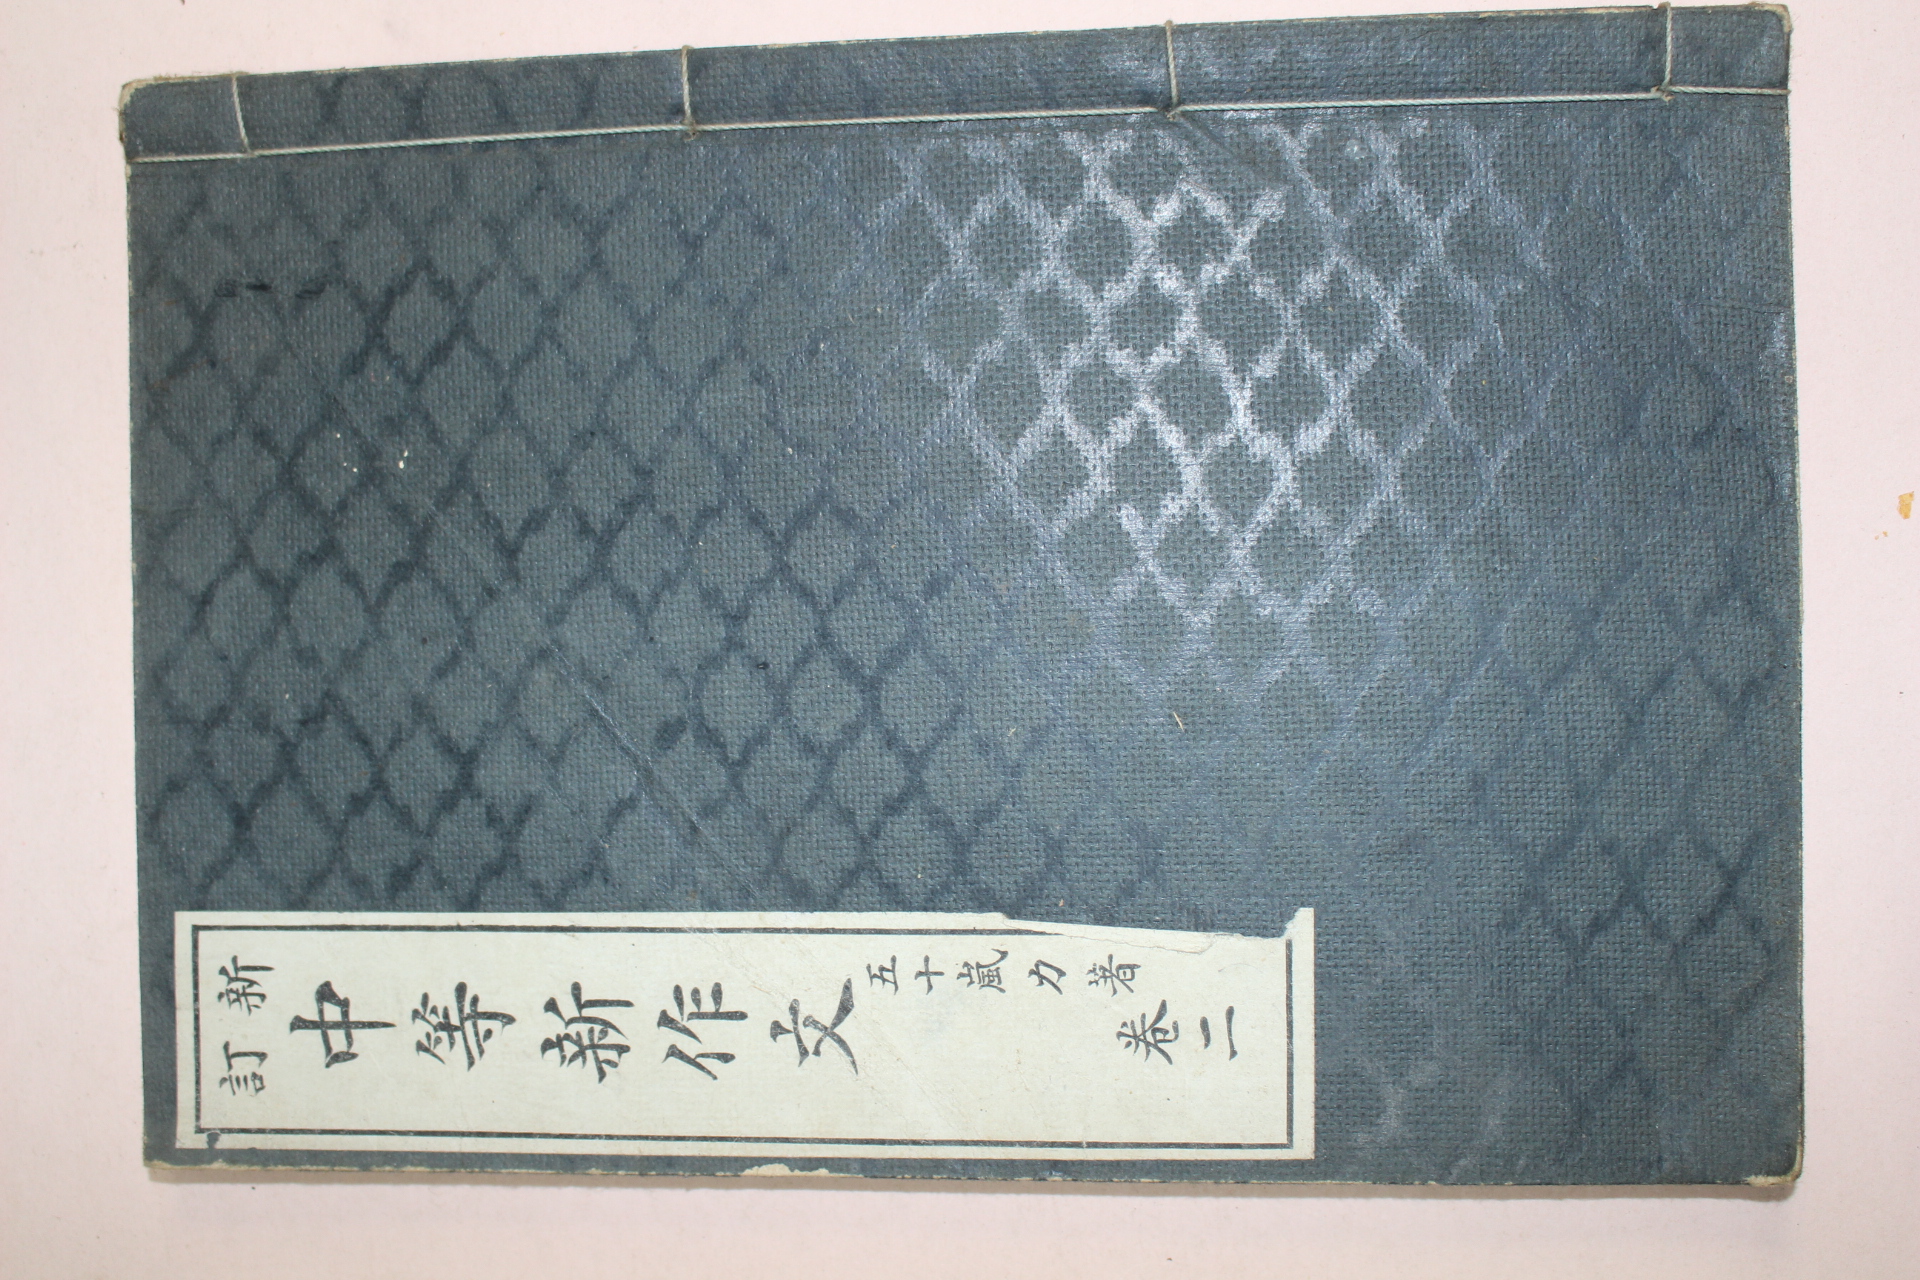 新訂
中等新作文
五十嵐力著
卷二